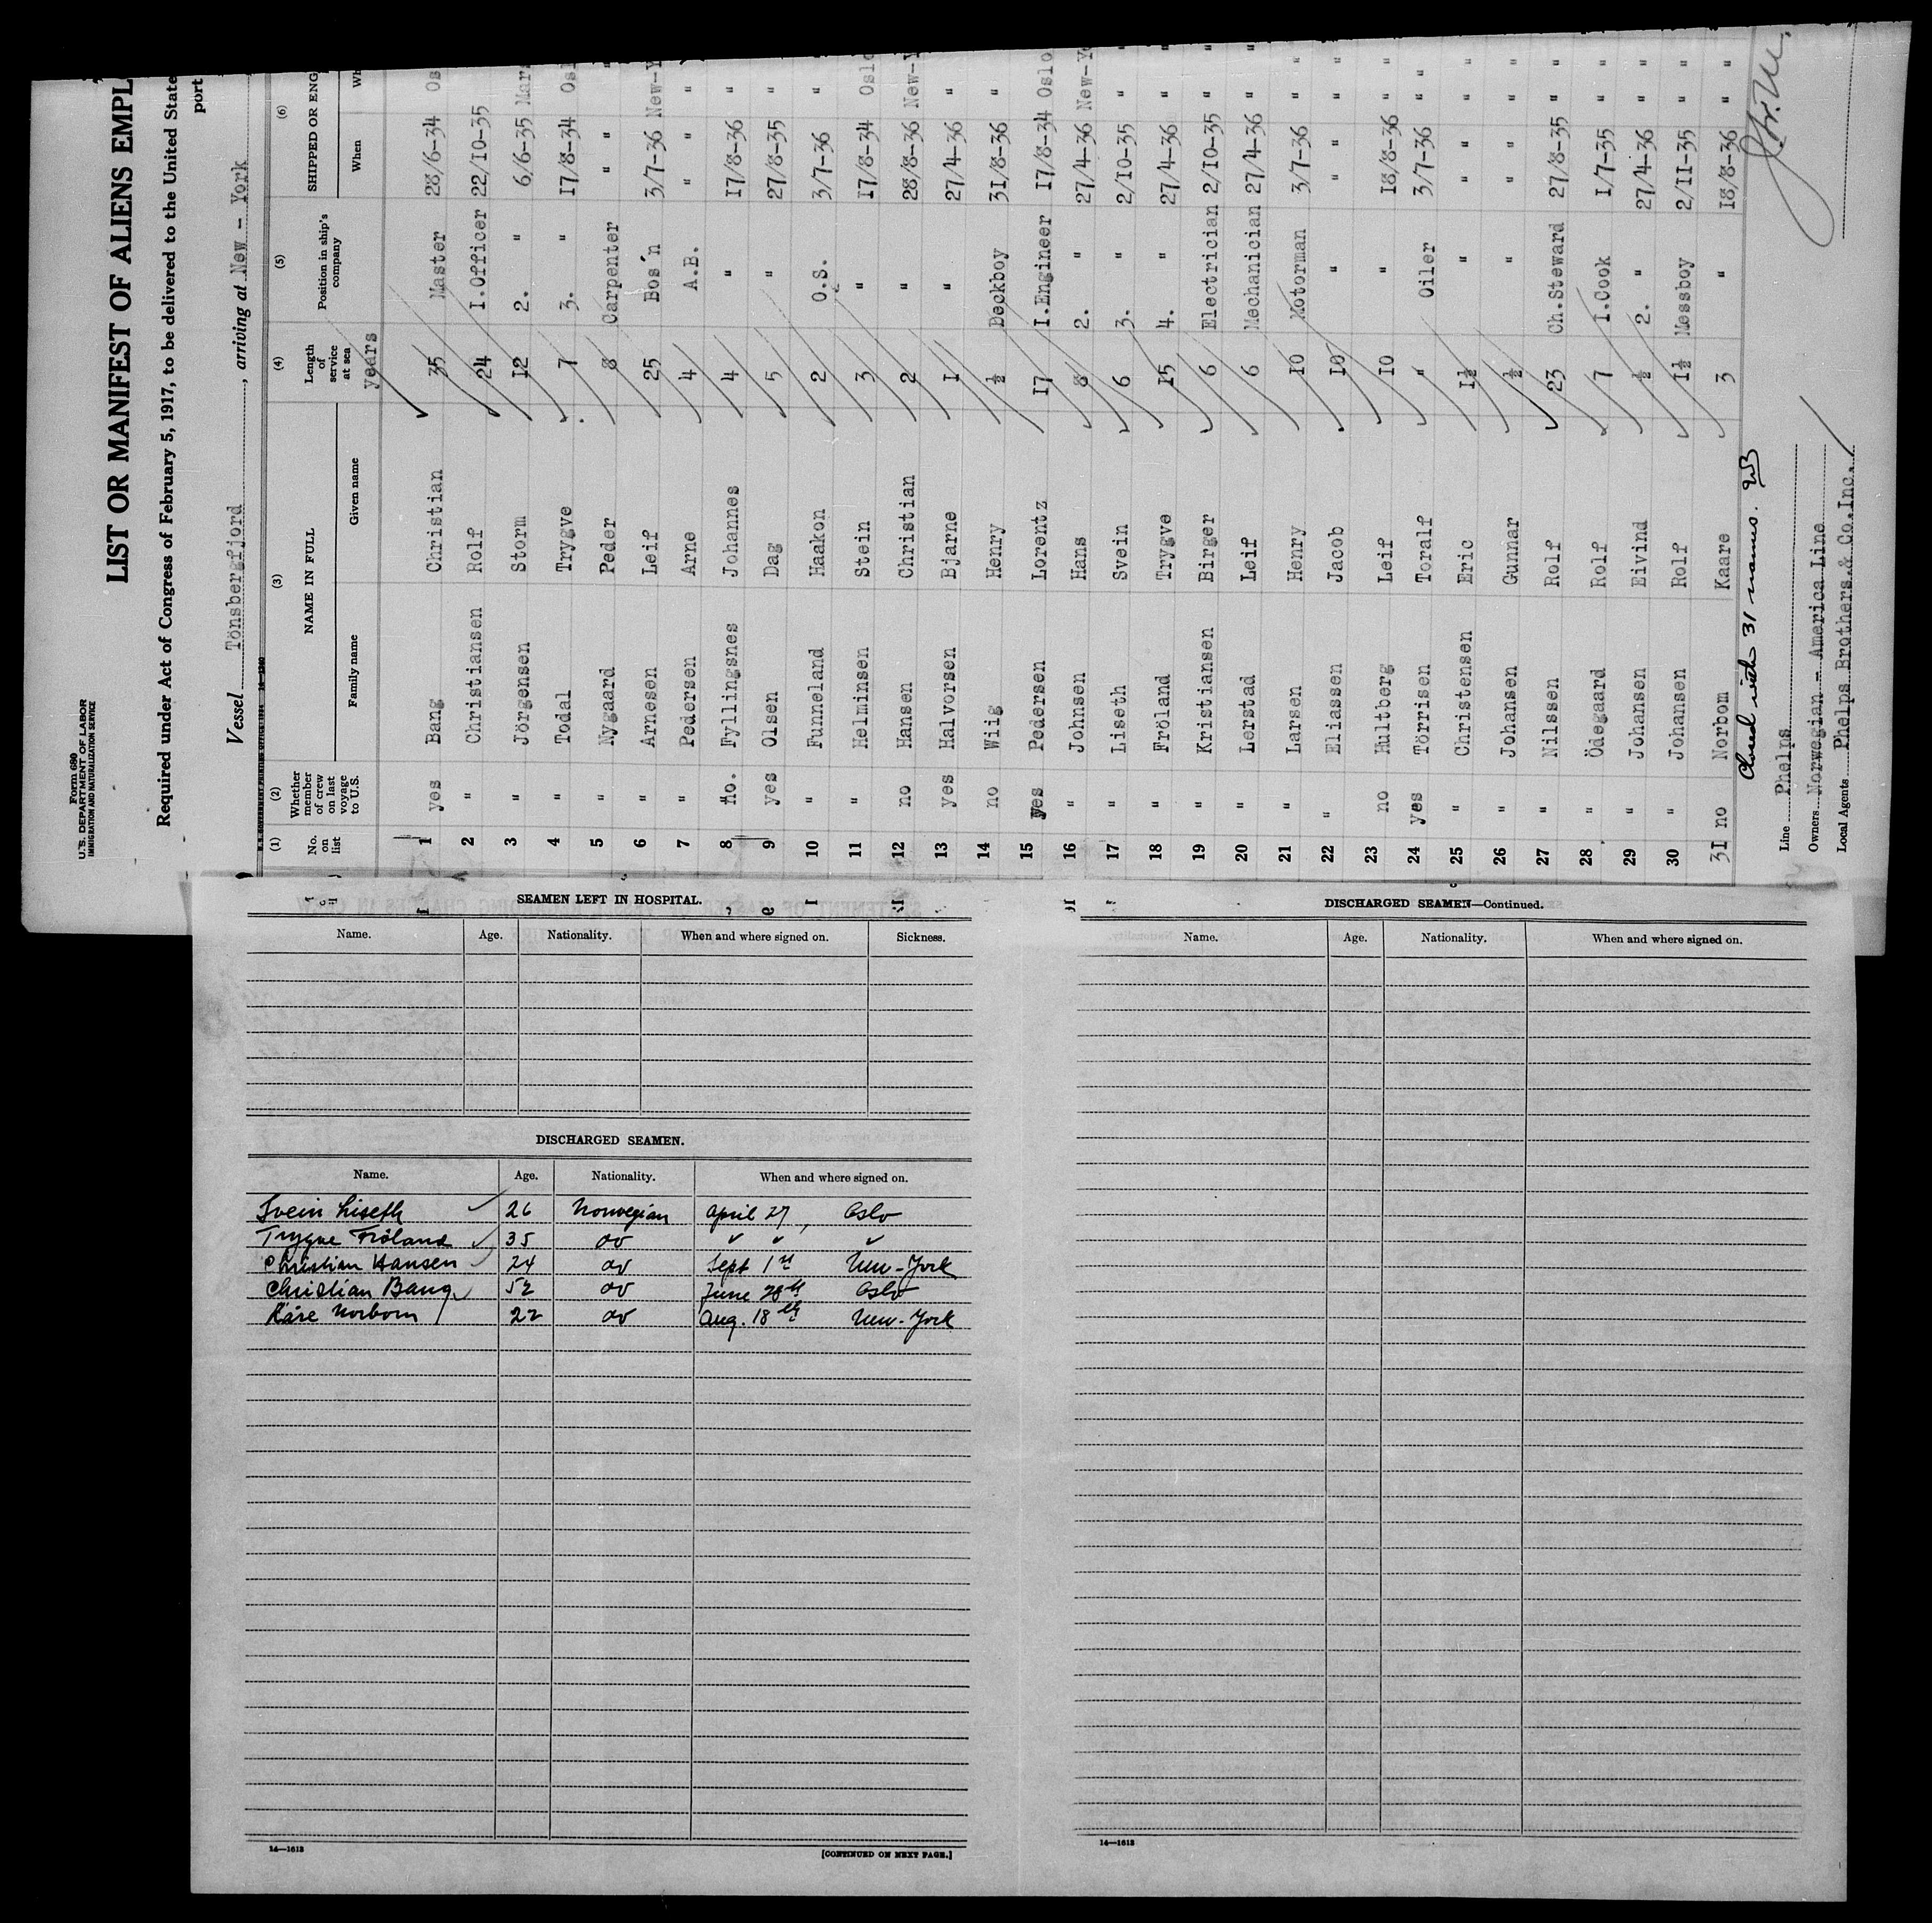 Form 680
U.S. DEPARTMENT OF LABOR
IMMIGRATION AND NATURALIZATION SERVICE
LIST OR MANIFEST OF ALIENS EMPL
Required under Act of Congress of February 5, 1917, to be delivered to the United State
port
Vessel Tönsbergfjord, arriving at New - York
(1) (2) (3) (4) (5) (6)
No. on list Whether member of crew on last voyage to U.S. NAME IN FULL Length of service at sea Position in ship's company SHIPPED OR ENG
Family name Given name When Wh
years
1 yes Bang Christian 35 Master 28/6-34 Os
2 " Christiansen Rolf 24 I.Officer 22/10-35
3 " Jörgensen Storm 12 2. " 6/6-35 Mars
4 " Todal Trygve 7 3. " 17/8-34 Osl
5 " Nygaard Peder 8 Carpenter " "
6 " Arnesen Leif 25 Bos'n 3/7-36 New-Y
7 " Pedersen Arne 4 A.B. " "
8 no. Fyllingsnes Johannes 4 " 17/8-36 "
9 yes Olsen Dag 5 " 27/8-35 "
10 " Funneland Haakon 2 O.S. 3/7-36 "
11 " Helminsen Stein 3 " 17/8-34 Oslo
12 no Hansen Christian 2 " 28/8-36 New-Y
13 yes Halvorsen Bjarne 1 " 27/4-36 "
14 no Wiig Henry ½ Deckboy 31/8-36 "
15 yes Pedersen Lorentz 17 I.Engineer 17/8-34 Oslo
16 " Johnsen Hans 8 2. " 27/4-36 New-Yo
17 " Liseth Svein 6 3. " 2/10-35 " "
18 " Fröland Trygve 15 4. " 27/4-36 " "
19 " Kristiansen Birger 6 Electrician 2/10-35 " "
20 " Lerstad Leif 6 Mechanician 27/4-36 " "
21 " Larsen Henry 10 Motorman 3/7-36 " "
22 " Eliassen Jacob 10 " " " "
23 no Hultberg Leif 10 " 18/8-36 " "
24 yes Törrisen Toralf " Oiler 3/7-36 " "
25 " Christensen Eric 1½ " " " "
26 " Johansen Gunnar ½ " " " "
27 " Nilssen Rolf 23 Ch.Steward 27/8-35 " "
28 " Ödegaard Rolf 7 I.Cook 1/7-35 " "
29 " Johansen Eivind ½ 2. " 27/4-36 " "
30 " Johansen Rolf 1½ Messboy 2/11-35 " "
31 no Norbom Kaare 3 " 18/8-36 " "
Closed with 31 names.
Line Phelps
Owners Norwegian - America Line
Local Agents Phelps Brothers & Co. Inc.
SEAMEN LEFT IN HOSPITAL.
Name. Age. Nationality. When and where signed on. Sickness.
DISCHARGED SEAMEN.
Name. Age. Nationality. When and where signed on.
Svein Liseth 26 Norwegian April 27, Oslo
Trygve Fröland 35 do " " "
Christian Hansen 24 do Sept 1st New-York
Christian Bang 52 do June 28th Oslo
Kåre Norbom 22 do Aug. 18th New-York
14—1613
[CONTINUED ON NEXT PAGE.]
DISCHARGED SEAMEN—Continued.
Name. Age. Nationality. When and where signed on.
14—1613